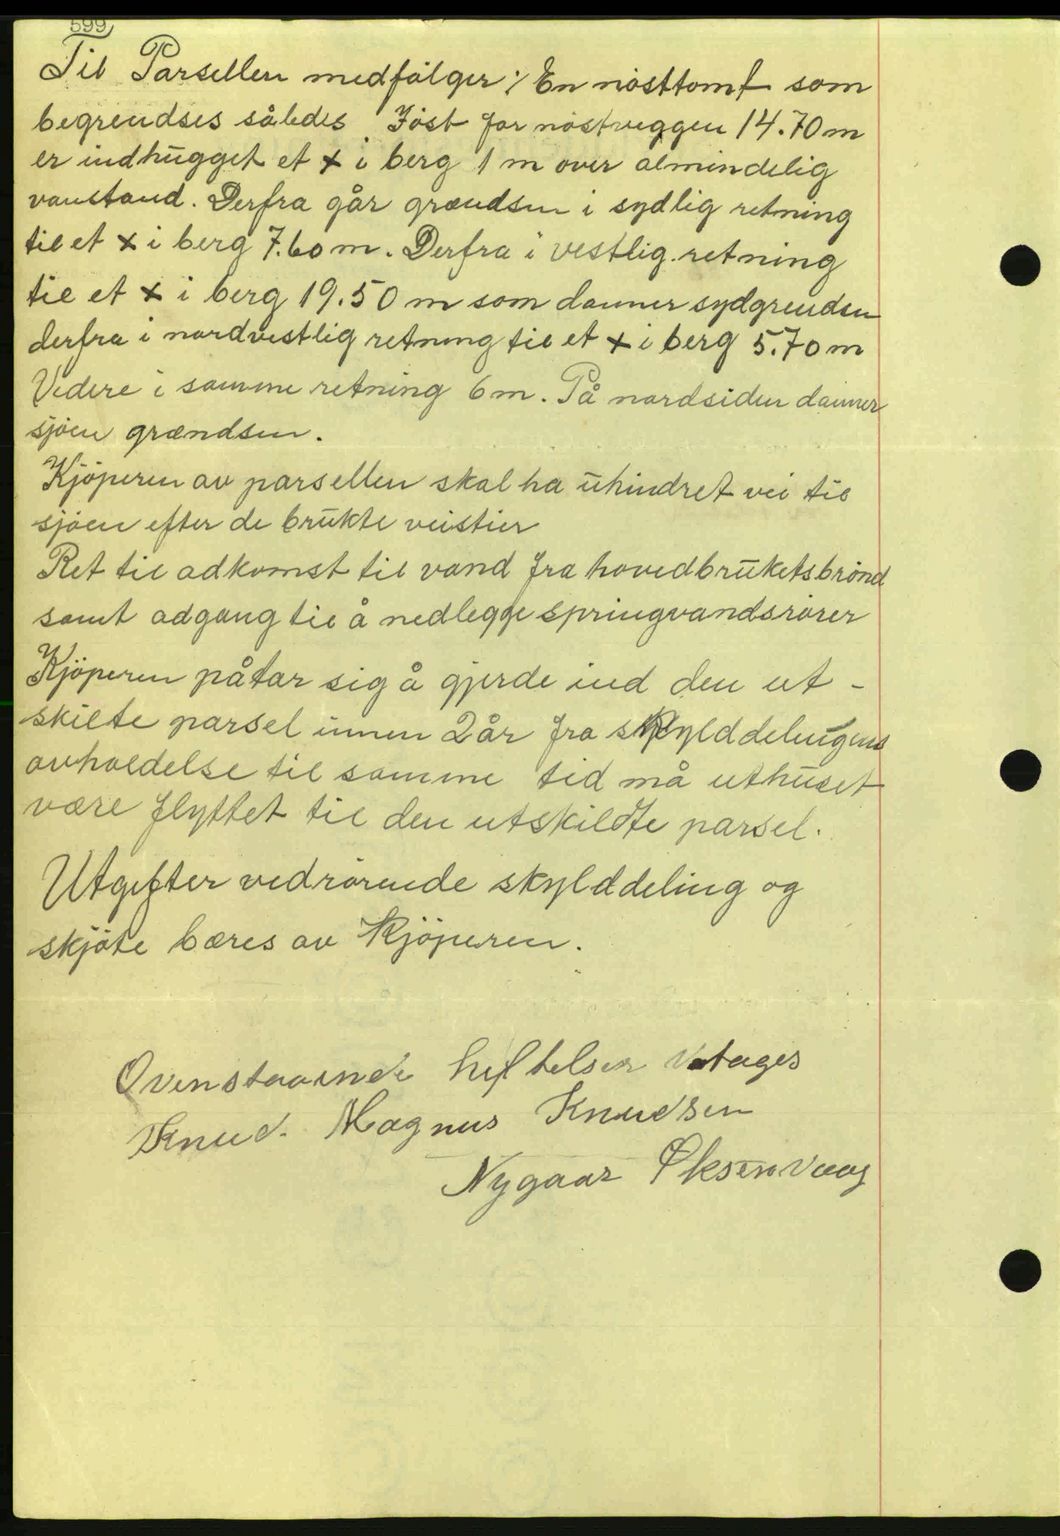 599
Til Parsellen medfölger :/ En nösttomt som
begrendses således. I öst for nöstveggen 14.70 m
er indhugget et x i berg 1 m over almindelig
vanstand. Derfra går grændsen i sydlig retning
til et x i berg 7.60 m. Derfra i vestlig retning
til et x i berg 19.50 m som danner sydgrendsen
derfra i nordvestlig retning til et x i berg 5.70 m
Videre i samme retning 6 m. På nordsiden danner
sjöen grændsen.
Kjöperen av parsellen skal ha uhindret vei til
sjöen efter de brukte veistier
Ret til adkomst til vand fra hovedbruketsbrönd
samt adgang til å nedlegge springvandsrörer
Kjöperen påtar sig å gjerde ind den ut-
skilte parsel innen 2 år fra skylddelingens
avholdelse til samme tid må uthuset
være flyttet til den utskildte parsel.
Utgifter vedrörende skylddeling og
skjöte bæres av Kjöperen.
Ovenstaaende heftelser vetages
Knud. Magnus Knudsen
Nygaar Øksenvaag